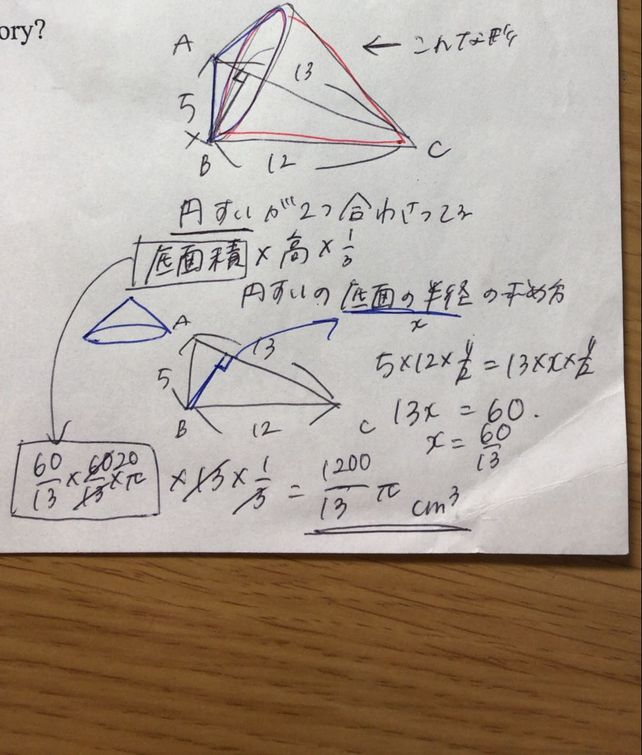 ory?
A
← こんな形
13
5
×
B
12
C
円すいが2つ合わさってる
底面積 × 高 × 1/3
円すいの 底面の半径 の求め方
x
A
13
5
B
12
C
5×12×1/2=13×x×1/2
13x = 60.
x = 60/13
60/13 × 60/13 20 ×π ×13× 1/3 = 1200/13 π cm³